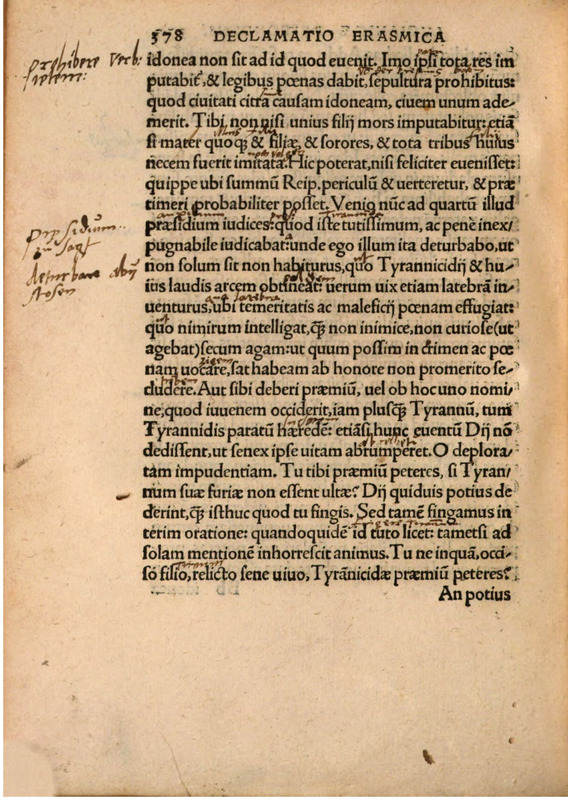 578 DECLAMATIO ERASMICA
idonea non sit ad id quod euenit. Imo ipsi tota res im
putabit᷑, & legibus pœnas dabit, sepultura prohibitus:
quod ciuitati citra causam idoneam, ciuem unum ade-
merit. Tibi non nisi unius filij mors imputabitur: etiã
si mater quoqꝫ & filiæ, & sorores, & tota tribus huius
necem fuerit imitata. Hic poterat, nisi feliciter euenisset:
quippe ubi summũ Reip. periculũ & uerteretur, & præ
timeri probabiliter posset. Venio nũc ad quartũ illud
præsidium iudices: quod iste tutissimum, ac penè inex/
pugnabile iudicabat: unde ego illum ita deturbabo, ut
non solum sit non habiturus, quo Tyrannicidij & hu/
ius laudis arcem obtineat: uerum uix etiam latebrã in/
uenturus, ubi temeritatis ac maleficij pœnam effugiat:
quo nimirum intelligat, q̃ꝫ non inimice, non curiose (ut
agebat) secum agam: ut quum possim in crimen ac pœ
nam uocare, sat habeam ab honore non promerito se-
dudere. Aut sibi deberi præmiũ, uel ob hoc uno nomi/
ne, quod iuuenem occiderit, iam plusq̃ꝫ Tyrannũ, tum
Tyrannidis paratũ hæredẽ: etiãsi hunc euentũ Dij nõ
dedissent, ut senex ipse uitam abrumperet. O deplora/
tam impudentiam. Tu tibi præmiũ peteres, si Tyran/
num suæ furiæ non essent ultæ? Dij quiduis potius de
derint, q̃ꝫ isthuc quod tu fingis. Sed tamẽ fingamus in
terim oratione: quandoquidẽ id tuto licet: tametsi ad
solam mentionẽ inhorrescit animus. Tu ne inquã, occi/
so filio, relicto sene uiuo, Tyrãnicidæ præmiũ peteres?
An potius